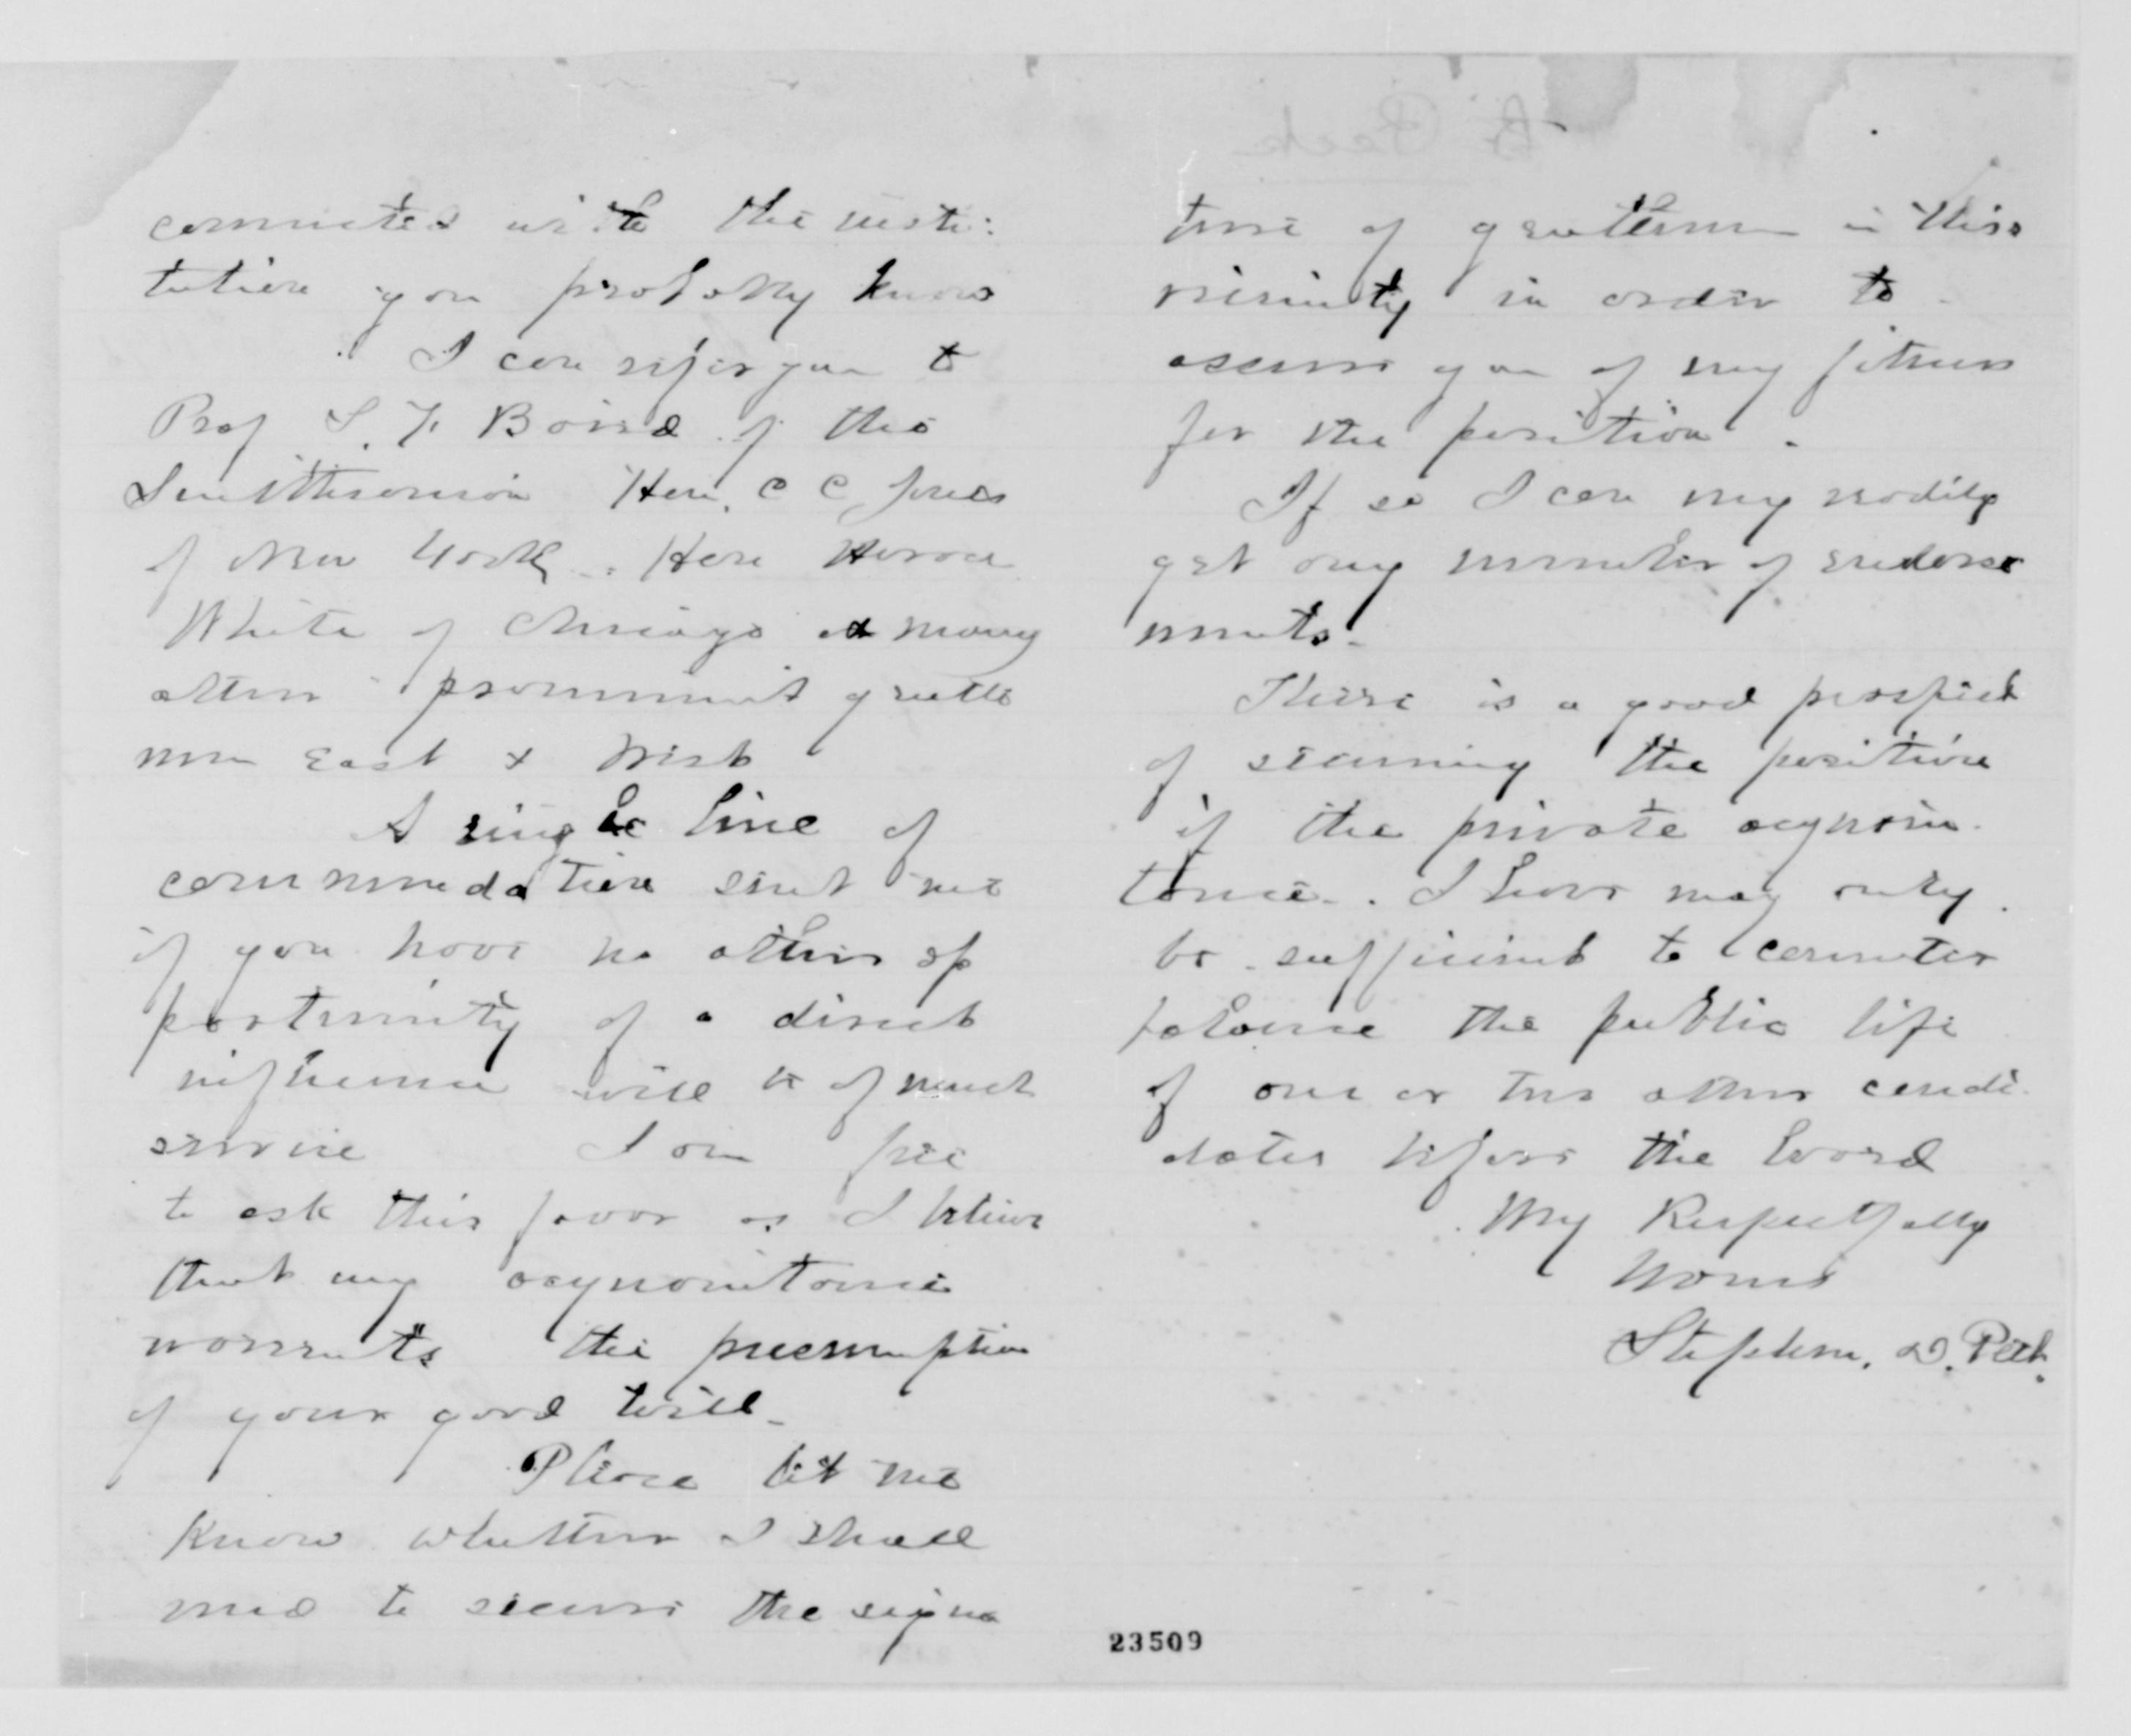 connected with the insti-
tution you probably know
I can refer you to
Prof S. F. Baird of the
Smithsonian Hon. C C Jones
of New York. Hon Horace
White of Chicago & many
other prominent gentle
men East & West
A single line of
commendation sent me
if you have no other op
portunity of a direct
influence will be of much
service I am free
to ask this favor as I believe
that my acquaintance
warrants the presumption
of your good will.
Please let me
know whether I shall
need to secure the signa
tures of gentlemen in this
vicinity in order to
assure you of my fitness
for the position.
If so I can very readily
get any number of endorse
ments.
There is a good prospect
of securing the position
if the private acquain-
tance I have may only
be sufficient to counter
balance the public life
of one or two other candi
dates before the board
Very Respectfully
Yours
Stephen. D. Peet.
23509